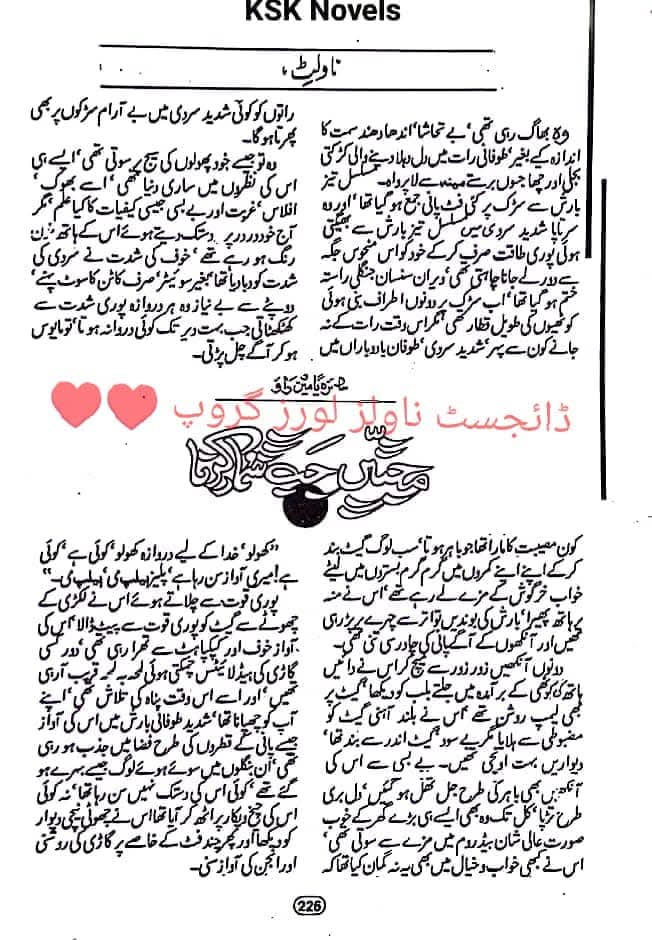 KSK Novels
ناولٹ
وہ بھاگ رہی تھی‘ بے تحاشا‘ اندھا دھند سمت کا
اندازہ کیے بغیر‘ طوفانی رات میں دل دہلا دینے والی کڑکتی
بجلی اور چھاجوں برستے مینہ سے لاپرواہ۔ مسلسل تیز
بارش سے سڑک پر کئی فٹ پانی جمع ہو گیا تھا‘ اور وہ
سرتاپا شدید سردی میں مسلسل تیز بارش سے بھیگتی
ہوئی پوری طاقت صرف کر کے خود کو اس منحوس جگہ
سے دور لے جانا چاہتی تھی‘ ویران سنسان جنگلی راستہ
ختم ہو گیا تھا‘ اب سڑک پر دونوں اطراف بنی ہوئی
کوٹھیوں کی طویل قطار تھی‘ مگر اس وقت رات کے نہ
جانے کون سے پہر‘ شدید سردی‘ طوفان بادوباراں میں
راتوں کو کوئی شدید سردی میں بے آرام سڑکوں پر بھی
پھرتا ہوگا۔
وہ تو جیسے خود پھولوں کی سیج پر سوتی تھی‘ ایسے ہی
اس کی نظروں میں ساری دنیا تھی‘ اسے بھوک‘
افلاس‘ غربت اور بے بسی جیسی کیفیات کا کیا علم‘ مگر
آج خود در در پر دستک دیتے ہوئے اس کے ہاتھ
رنگ ہو رہے تھے‘ خوف کی شدت نے سردی کی
شدت کو دبا دیا تھا‘ بغیر سوئیٹر‘ صرف کاٹن کا سوٹ پہنے‘
دوپٹے سے بے نیاز وہ ہر دروازہ پوری شدت سے
کھٹکھٹاتی جب بہت دیر تک کوئی دروازہ نہ ہوتا‘ تو مایوس
ہو کر آگے چل پڑتی۔
ڈائجسٹ ناولز لورز گروپ
محبتیں جب شمار کرنا
کون مصیبت کا مارا تھا جو باہر ہوتا‘ سب لوگ گیٹ بند
کر کے اپنے اپنے کمروں میں گرم گرم بستروں میں لیٹے
خواب خرگوش کے مزے لے رہے تھے‘ اس نے منہ
پر ہاتھ پھیرا‘ بارش کی بوندیں تواتر سے چہرے پر پڑ رہی
تھیں اور آنکھوں کے آگے پانی کی چادر سی تنی تھی۔
دونوں آنکھیں زور زور سے میچ کر اس نے دائیں
ہاتھ کی کوٹھی کے برآمدہ میں جلتے بلب کو دیکھا‘ گیٹ پر
بھی لیمپ روشن تھے‘ اس نے بلند آہنی گیٹ کو
مضبوطی سے ہلایا مگر بے سود‘ گیٹ اندر سے بند تھا‘
دیواریں بہت اونچی تھیں۔ بے بسی سے اس کی
آنکھیں بھی باہر کی طرح جل تھل ہو گئیں‘ دل بری
طرح تڑپا‘ کل تک وہ بھی ایسے ہی بڑے گھر کے خوب
صورت عالی شان بیڈ روم میں مزے سے سوتی تھی‘
اس نے کبھی خواب و خیال میں بھی یہ نہ گمان کیا تھا کہ
”کھولو‘ خدا کے لیے دروازہ کھولو‘ کوئی ہے‘ کوئی
ہے! میری آواز سن رہا ہے‘ پلیز ہیلپ می‘ ہیلپ می۔“
پوری قوت سے چلاتے ہوئے اس نے لکڑی کے
چھوٹے سے گیٹ کو پوری قوت سے پیٹ ڈالا‘ اس کی
آواز خوف اور کپکپاہٹ سے تھرا رہی تھی‘ دور کسی
گاڑی کی ہیڈ لائیٹس چمکتی ہوئی لمحہ بہ لمحہ قریب آ رہی
تھیں‘ اور اسے اس وقت پناہ کی تلاش تھی‘ اپنے
آپ کو چھپانا تھا‘ شدید طوفانی بارش میں اس کی آواز
جیسے پانی کے قطروں کی طرح فضا میں جذب ہو رہی
تھی‘ ان بنگلوں میں سوئے ہوئے لوگ جیسے بہرے ہو
گئے تھے‘ کوئی اس کی دستک نہیں سن رہا تھا‘ نہ کوئی
اس کی چیخ و پکار پر اٹھ کر آیا تھا اس نے چھوٹی نیچی دیوار
کو دیکھا اور پھر چند فٹ کے فاصے پر گاڑی کی روشنی
اور انجن کی آواز سنی۔
226